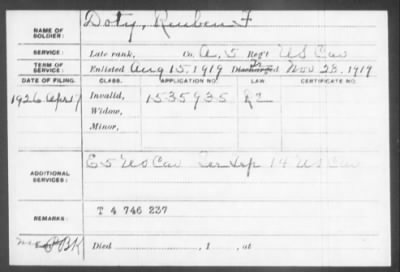 NAME OF SOLDIER: Doty, Reuben F
SERVICE: Late rank, Co. A, 5 Reg't US Cav
TERM OF SERVICE: Enlisted Aug 15, 1919 Discharged Nov 23, 1919
DATE OF FILING. CLASS. APPLICATION NO. LAW CERTIFICATE NO.
1926 Apr 17 Invalid, 1535935
Widow,
Minor,
ADDITIONAL SERVICES: 5 US Cav 14 US Cav
REMARKS: T 4 746 237
Died , 1 , at